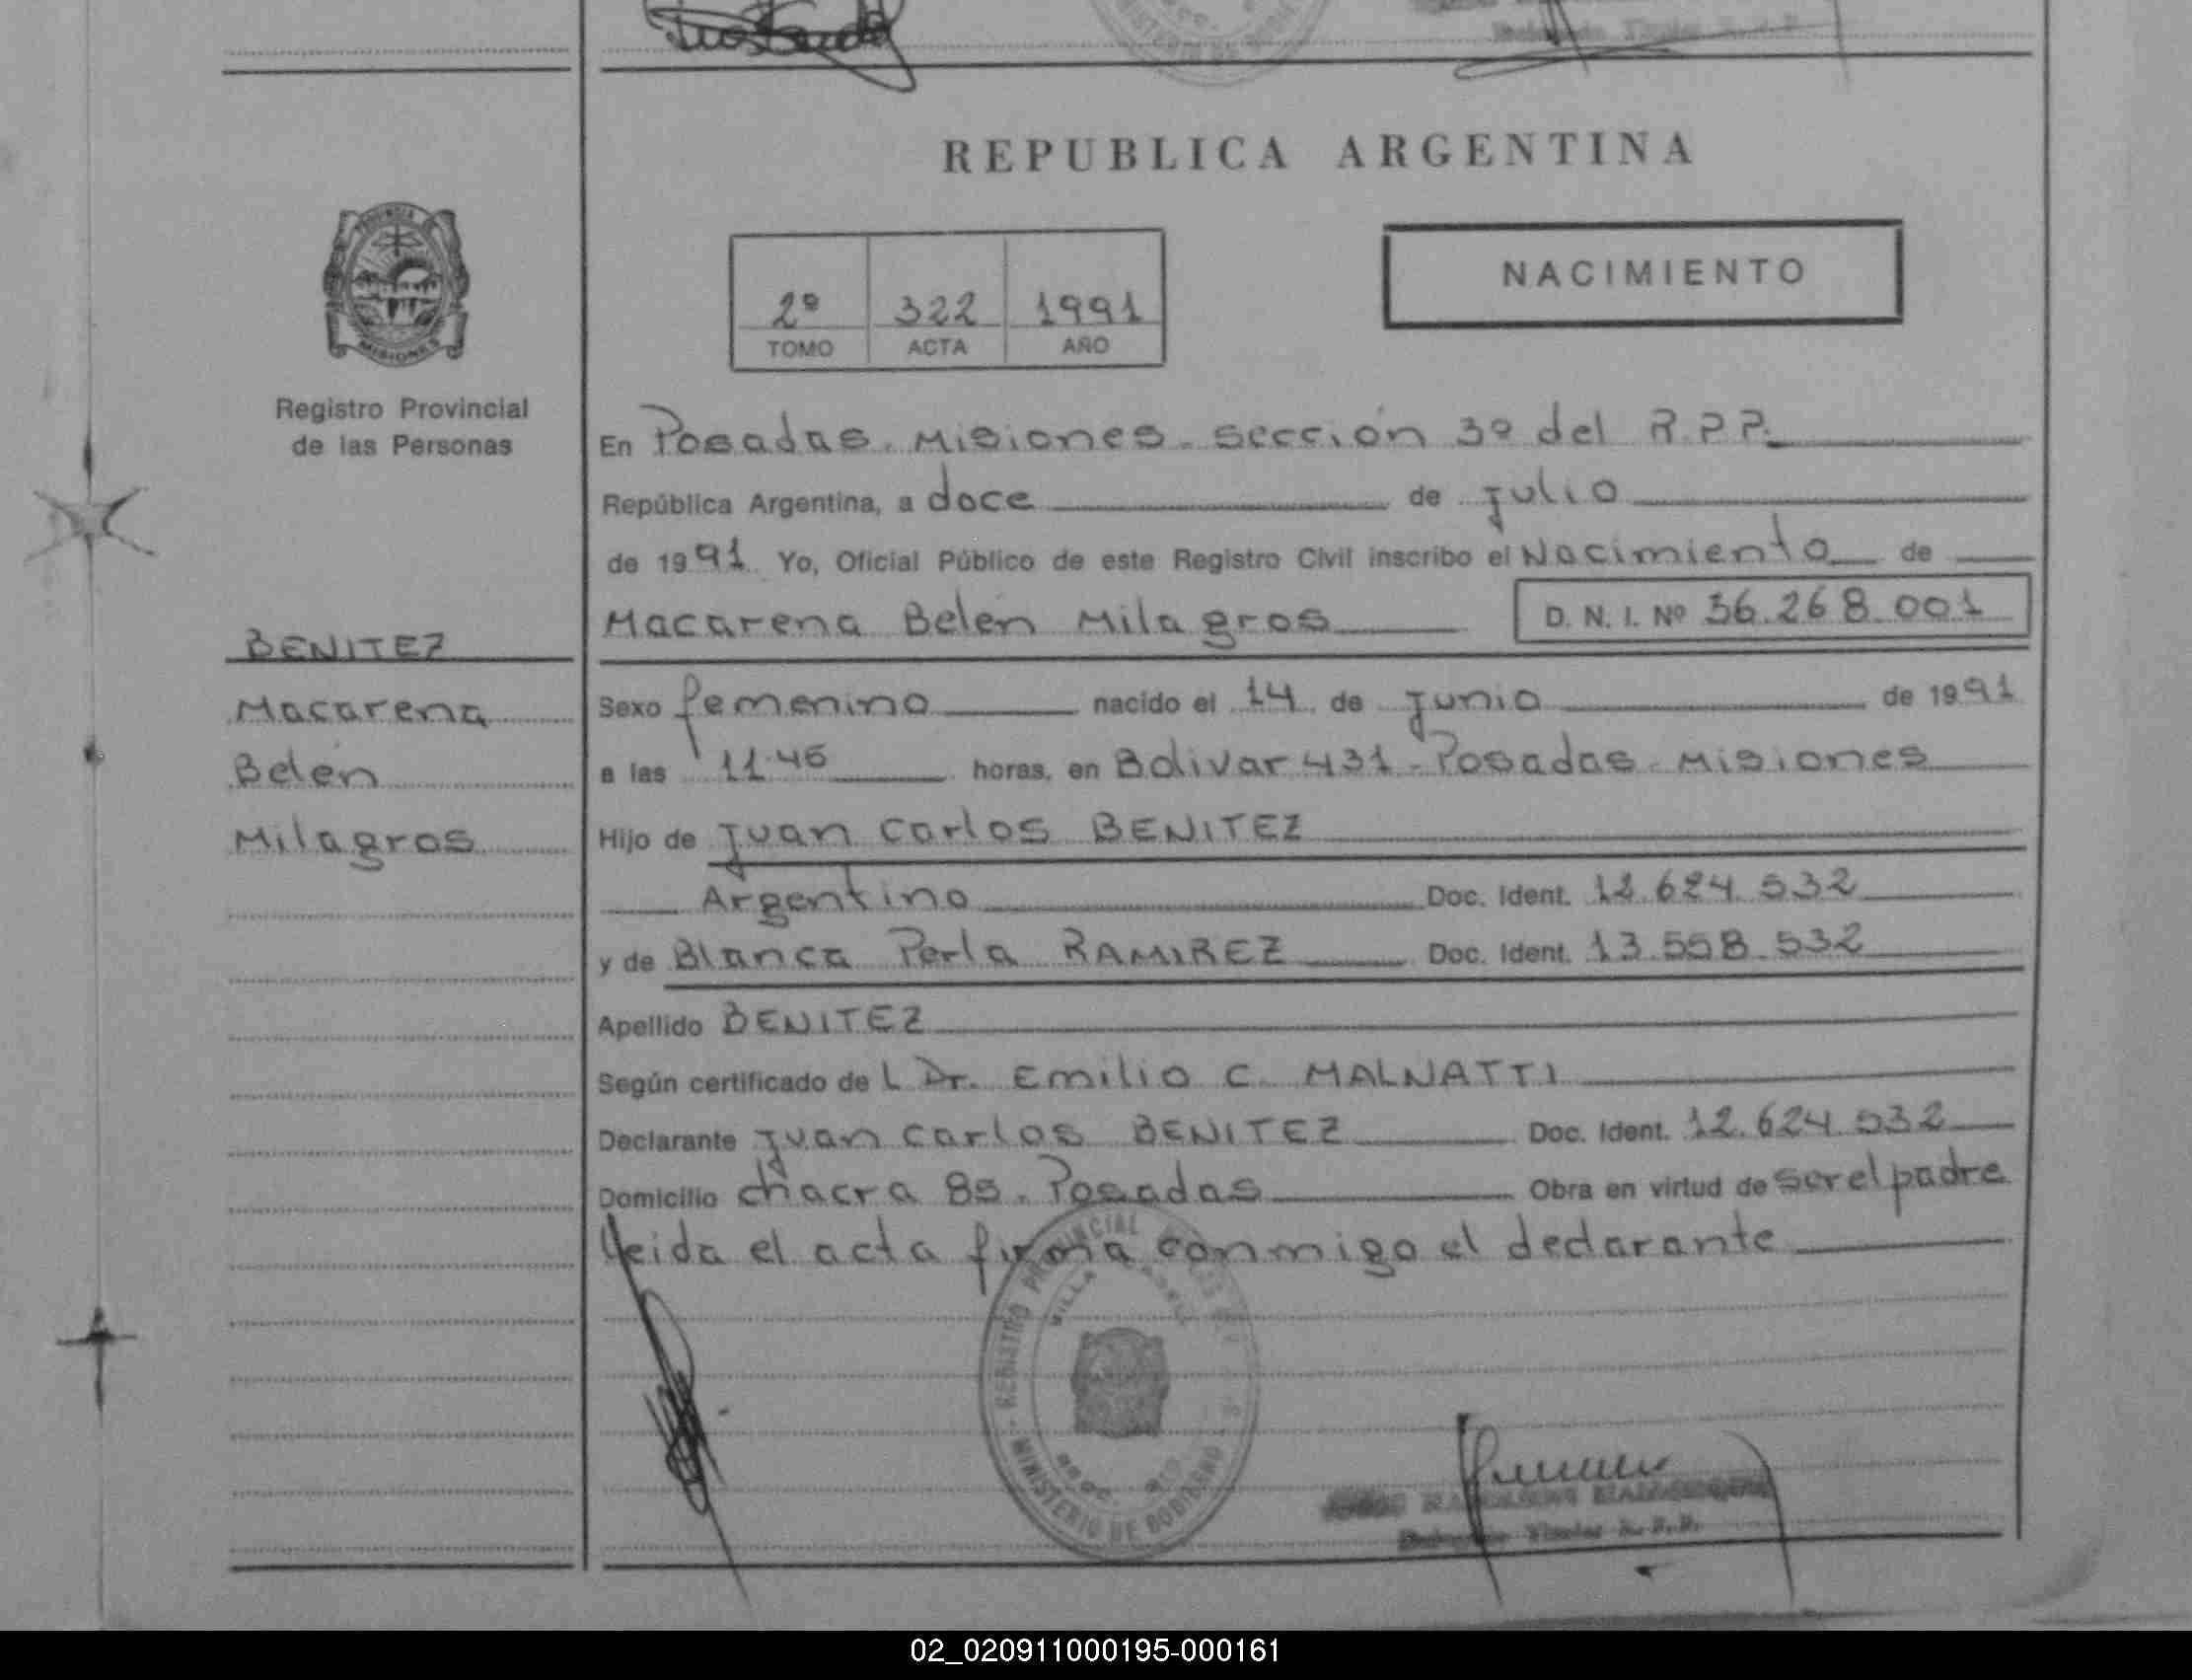 REPUBLICA ARGENTINA
PROVINCIA
MISIONES
Registro Provincial
de las Personas
2º 322 1991
TOMO ACTA AÑO
NACIMIENTO
En Posadas. Misiones. Sección 3º del R.P.P.
República Argentina, a doce de Julio
de 1991 Yo, Oficial Público de este Registro Civil inscribo el Nacimiento de
Macarena Belén Milagros D. N. I. Nº 36.268.001
BENITEZ
Macarena
Belén
Milagros
Sexo femenino nacido el 14 de Junio de 1991
a las 11.45 horas, en Bolivar 431 - Posadas - Misiones
Hijo de Juan Carlos BENITEZ
Argentino Doc. Ident. 12.624.532
y de Blanca Perla RAMIREZ Doc. Ident. 13.558.532
Apellido BENITEZ
Según certificado de L Dr. Emilio C. MALNATTI
Declarante Juan Carlos BENITEZ Doc. Ident. 12.624.532
Domicilio chacra 85. Posadas Obra en virtud de ser el padre
leida el acta firma conmigo el declarante
REGISTRO PROVINCIAL
MINISTERIO DE GOBIERNO
02_020911000195-000161